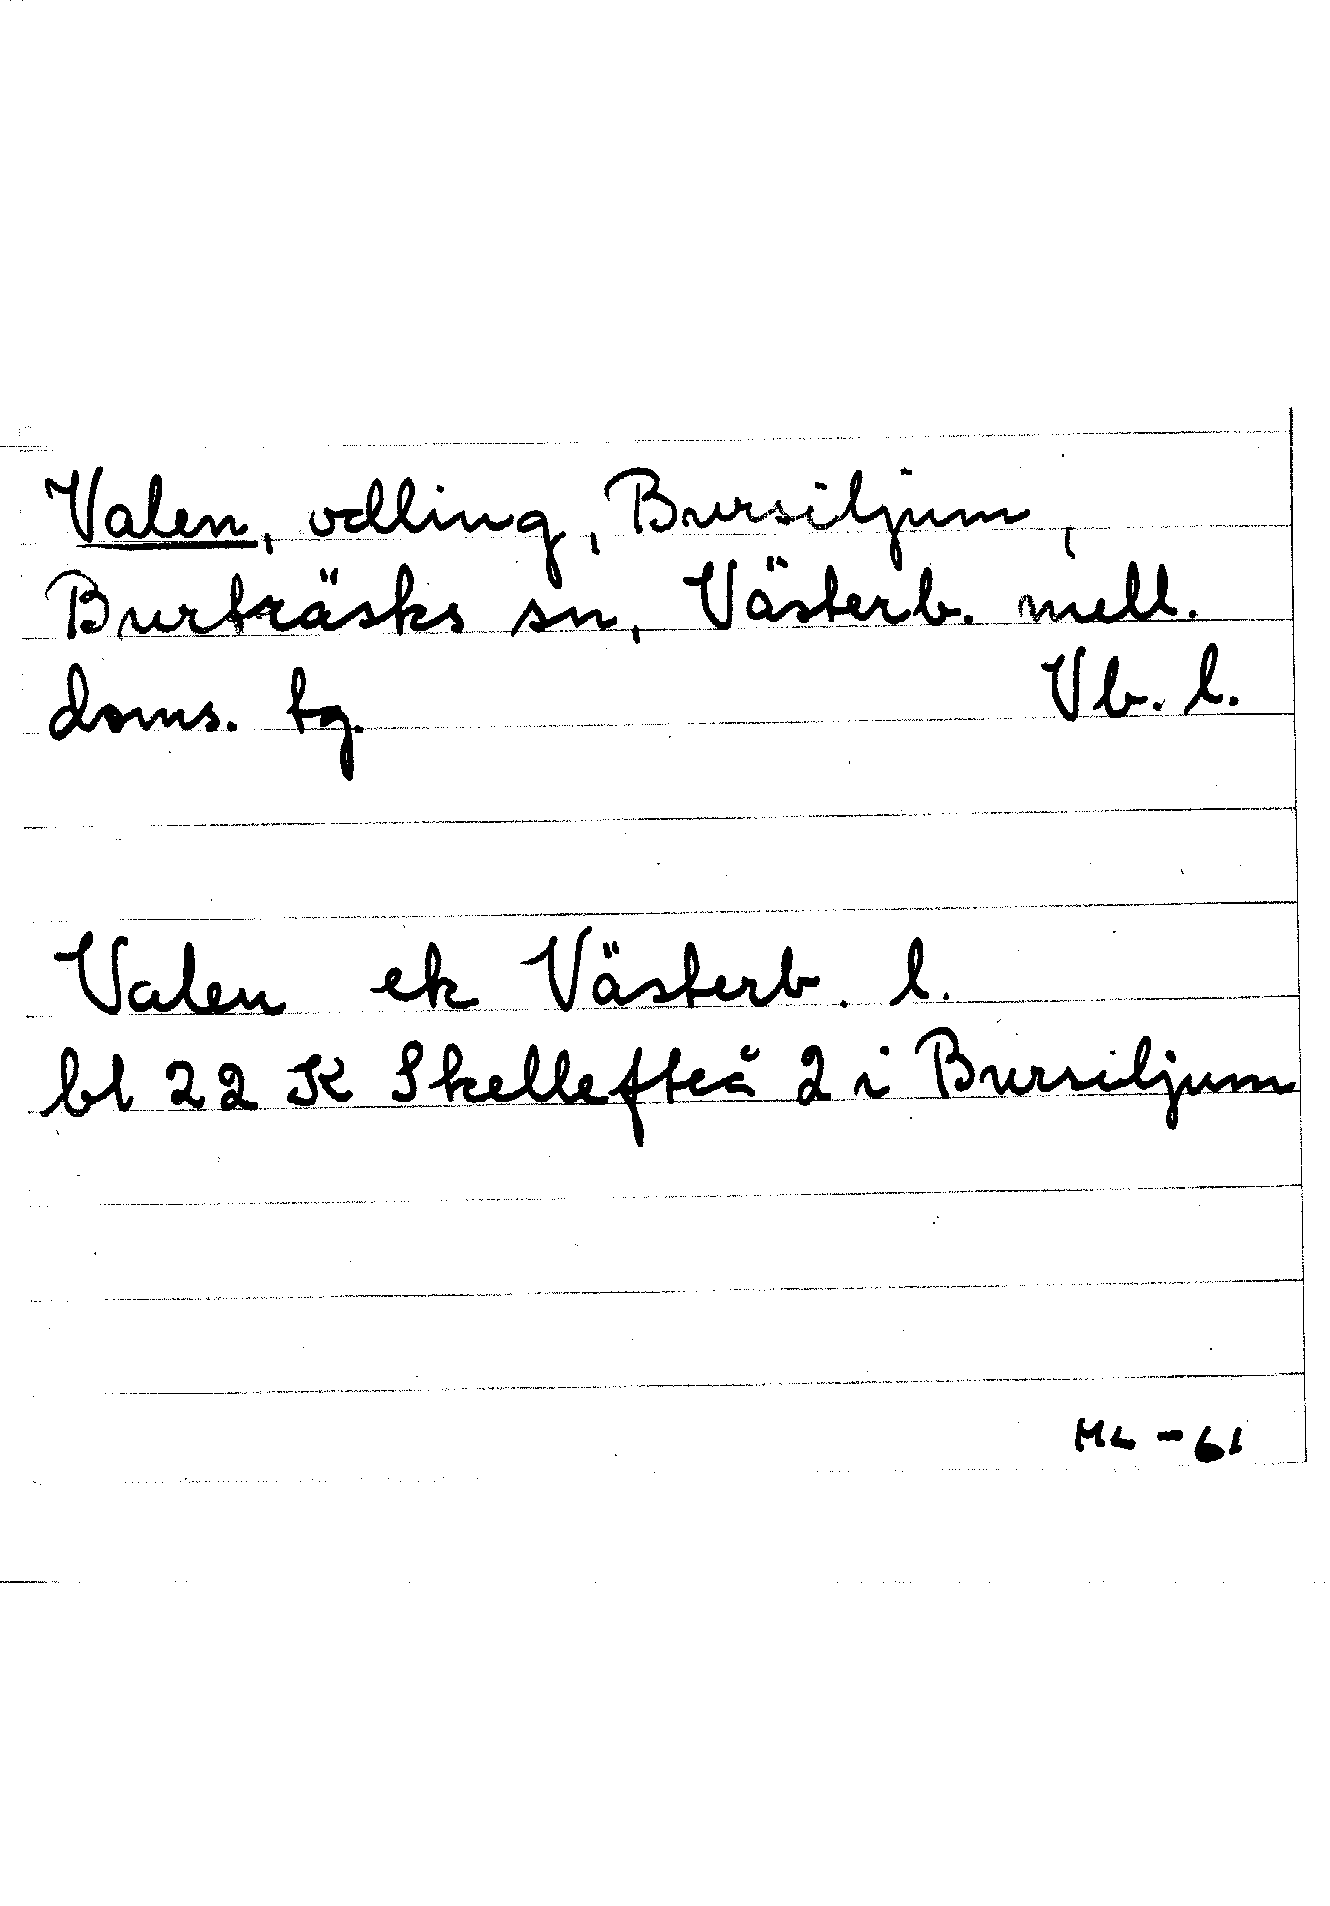 Valen, odling, Bursiljum,
Burträsks sn, Västerb. mell.
doms. tg. Vb. l.
Valen ek Västerb. l.
bl 22 K Skellefteå 2 i Bursiljum
ML -61